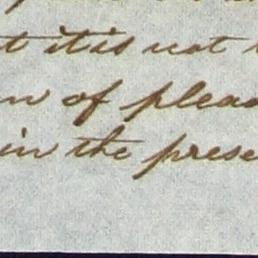 t it is not
n of pleas
in the prese